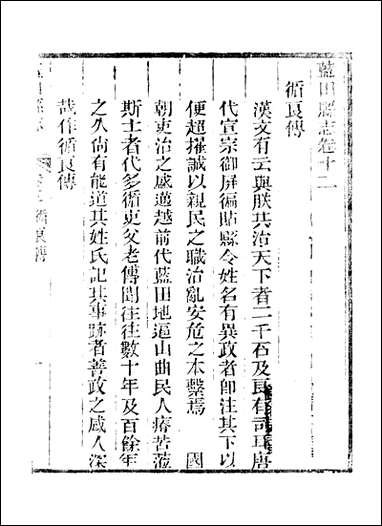 藍田縣志卷十二
循良傳
漢文有云與朕共治天下者二千石及良有司耳唐
代宣宗御屏徧貼縣令姓名有異政者卽注其下以
便超擢誠以親民之職治亂安危之本繫焉　國
朝吏治之盛邁越前代藍田地逼山曲民人瘠苦蒞
斯士者代多循吏父老傳聞往往數十年及百餘年
之久尚有能道其姓氏記其事跡者善政之感人深
哉作循良傳
循良傳